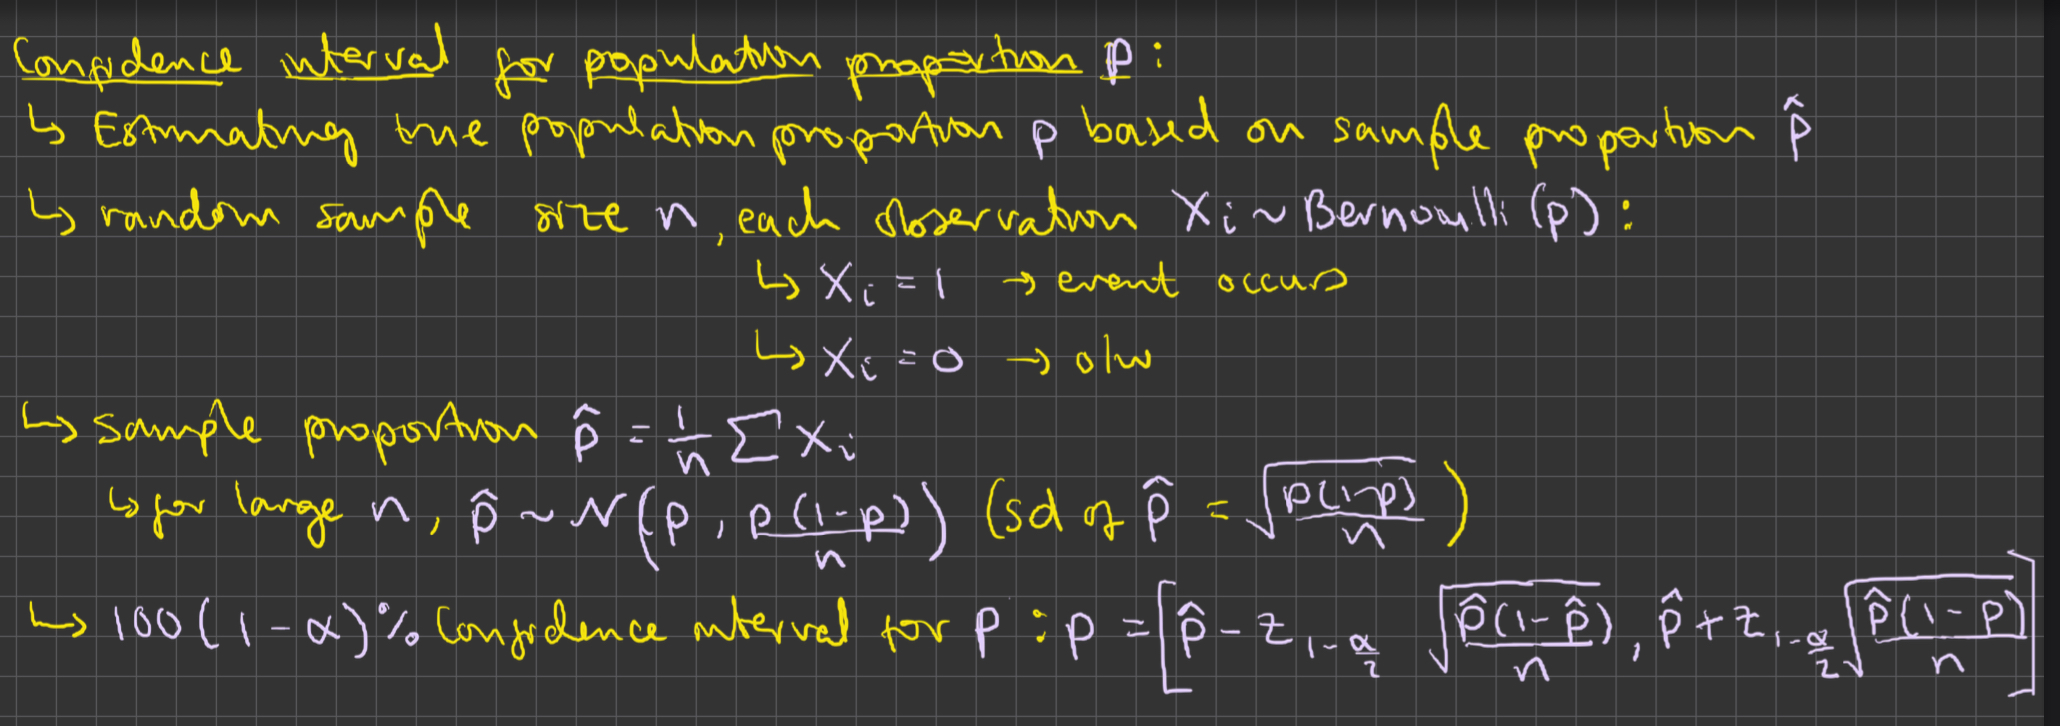 Confidence interval for population proportion p:
↳ Estimating true population proportion p based on sample proportion p̂
↳ random sample size n, each observation Xᵢ ~ Bernoulli(p):
↳ Xᵢ = 1 → event occurs
↳ Xᵢ = 0 → o/w
↳ sample proportion p̂ = 1/n ∑ Xᵢ
↳ for large n, p̂ ~ N(p, p(1-p)/n) (sd of p̂ = √(p(1-p)/n))
↳ 100(1-α)% Confidence interval for p : p = [p̂ - z_{1-α/2} √(p̂(1-p̂)/n), p̂ + z_{1-α/2} √(p̂(1-p)/n)]